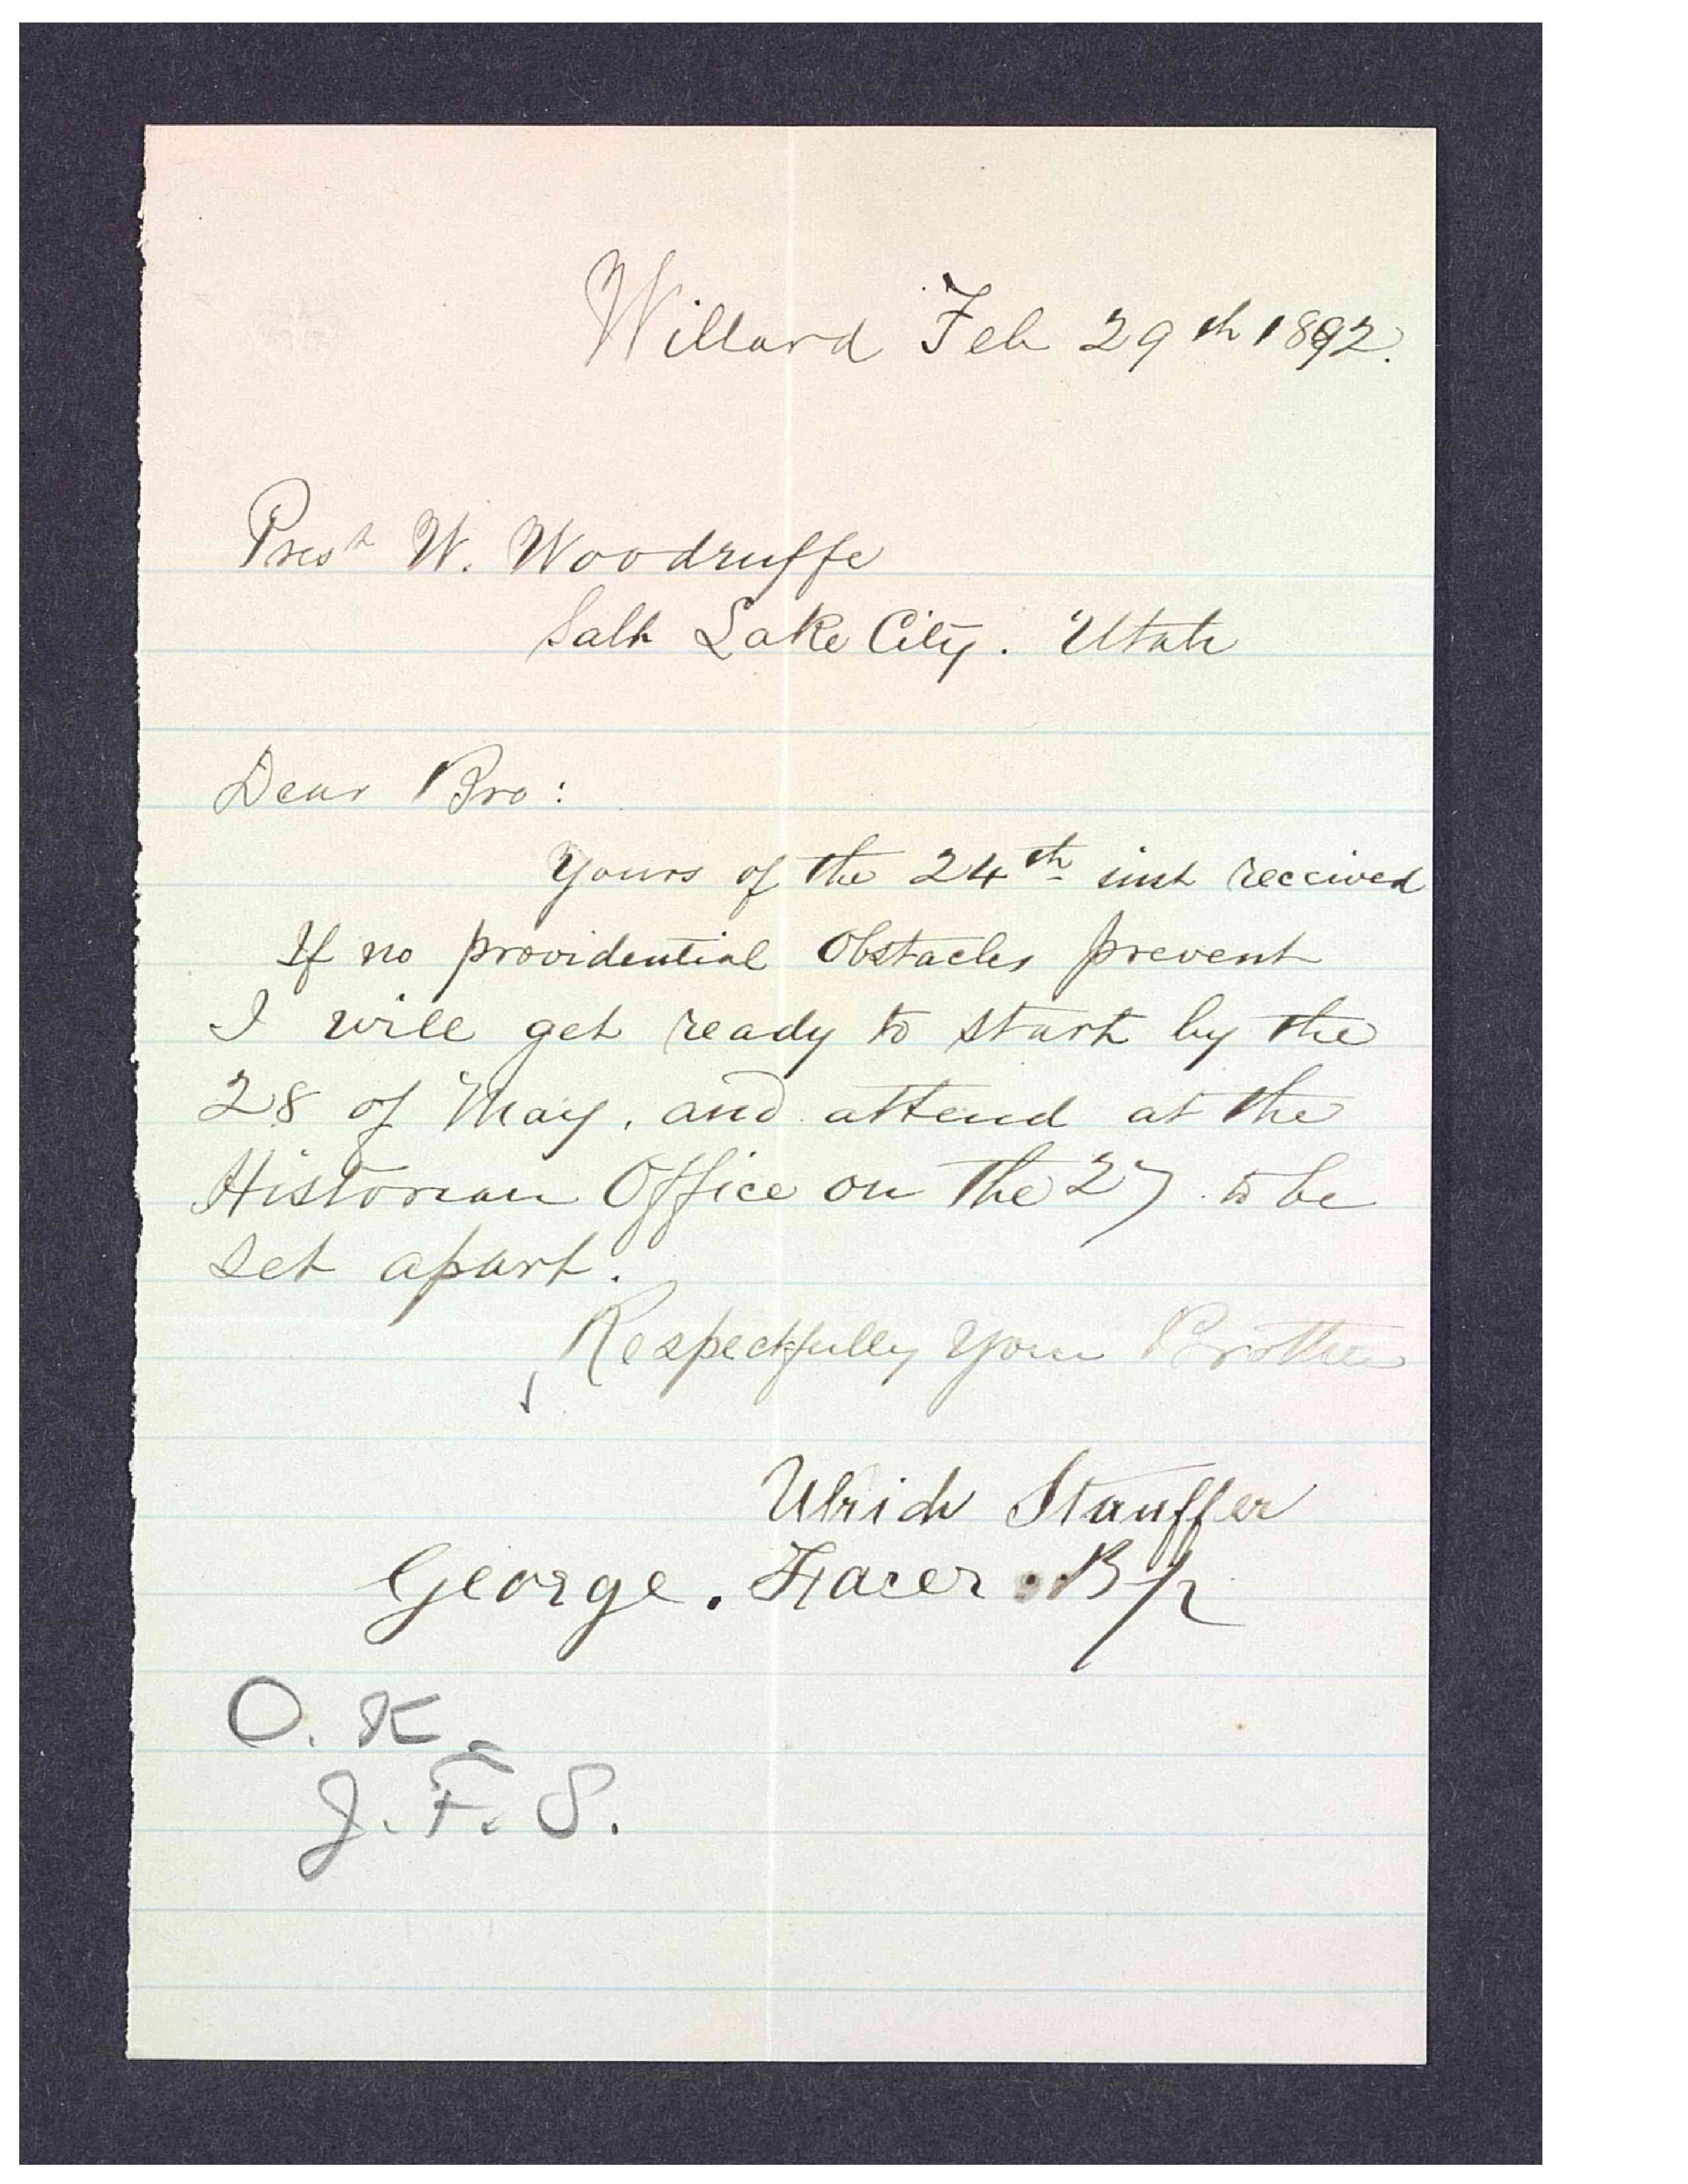 Willard Feb 29th 1892.
Prest W. Woodruffe
Salt Lake City. Utah
Dear Bro:
Yours of the 24th inst received
If no providential Obstacles prevent
I will get ready to start by the
28 of May, and attend at the
Historian Office on the 27 to be
set apart.
Respectfully Your Brother
Ulrich Stauffer
George. Facer. Bp
O. K.
J. F. S.